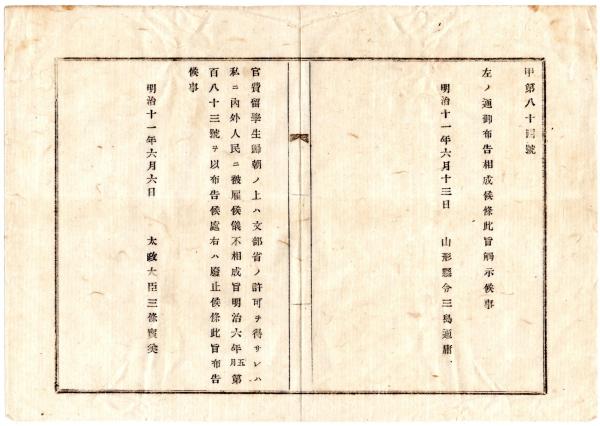 甲第八十四號
左ノ通御布告相成候條此旨觸示候事
明治十一年六月十三日　山形縣令三島通庸
官費留學生歸朝ノ上ハ文部省ノ許可ヲ得サレハ
私ニ內外人民ニ被雇候儀不相成旨明治六年五月第
百八十三號ヲ以布告候處右ハ廢止候條此旨布告
候事
明治十一年六月六日　太政大臣三條實美